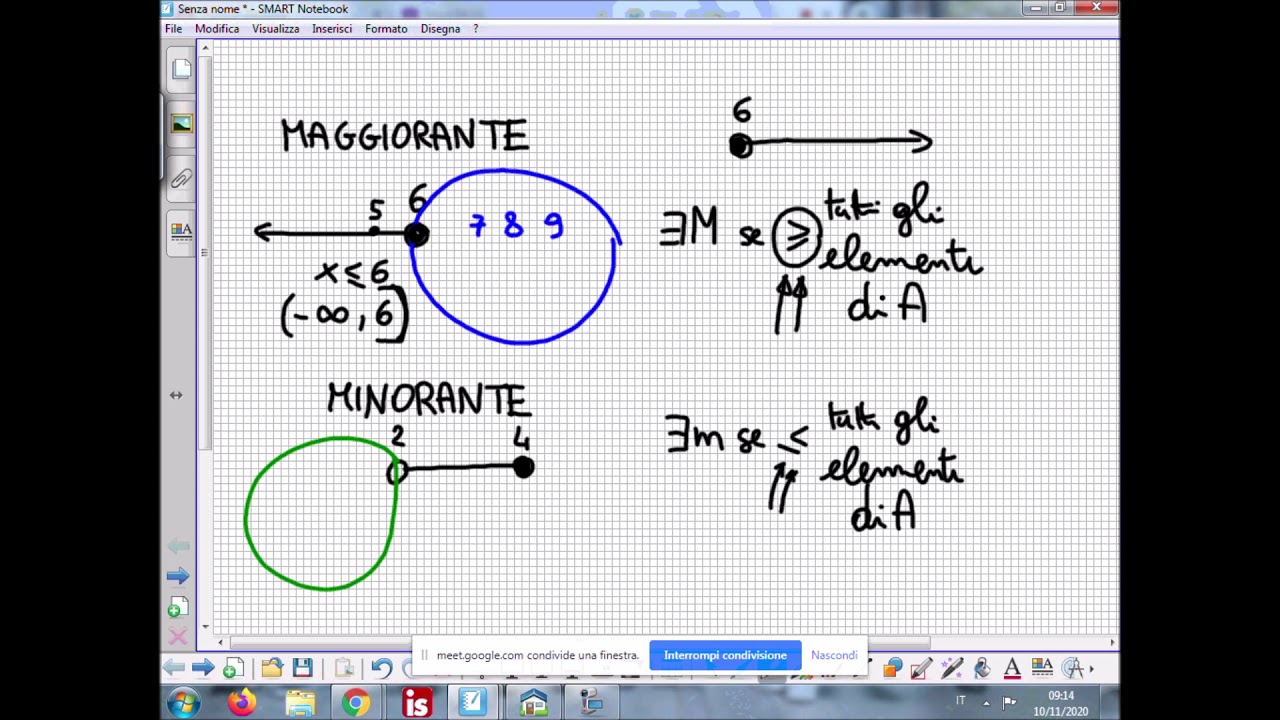 Senza nome * - SMART Notebook
File Modifica Visualizza Inserisci Formato Disegna ?
MAGGIORANTE
6
5 6
7 8 9
x ≤ 6
(-∞, 6]
∃M se ≥ tutti gli
elementi
di A
MINORANTE
2 4
∃m se ≤ tutti gli
elementi
di A
meet.google.com condivide una finestra. Interrompi condivisione Nascondi
A
is
IT
09:14
10/11/2020